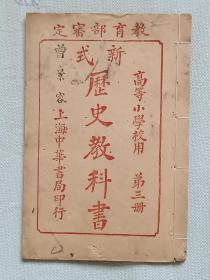 定審部育教
新式
高等小學校用　第三册
歷史教科書
上海中華書局印行